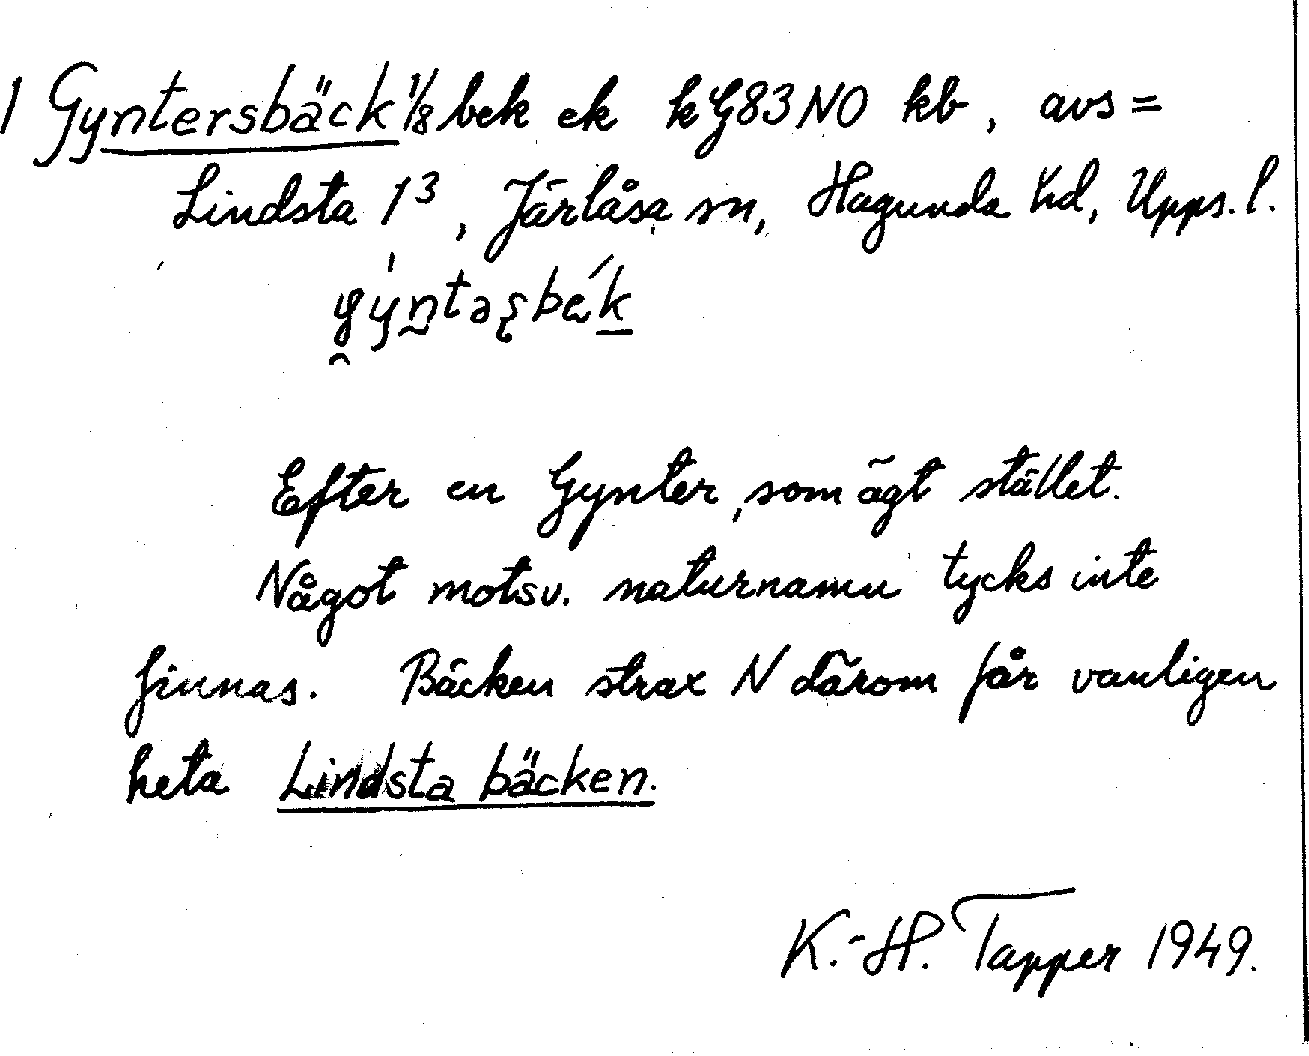 1 Gyntersbäck 1/8 bek ek kG83NO kb, avs =
Lindsta 1³, Järlåsa sn, Hagunda hd, Upps. l.
gýntəʂbék
Efter en Gynter, som ägt stället.
Något motsv. naturnamn tycks inte
finnas. Bäcken strax N därom får vanligen
heta Lindsta bäcken.
K.-H. Tapper 1949.